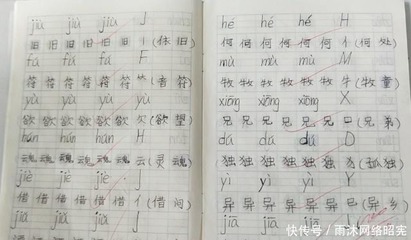 jiù jiù jiù J
旧 旧 旧 旧 旧 丨 (依旧)
fú fú fú F
符 符 符 符 符 ⺮ (音符)
yù yù yù yù
欲 欲 欲 欲 欲 欠 (欲望)
hún hún hún H
魂 魂 魂 魂 魂 云 (灵魂)
jiè jiè jiè J
借 借 借 借 借 亻 (借问)
jiā jiā jiā J
hé hé hé H
何 何 何 何 何 亻 (何处)
mù mù mù M
牧 牧 牧 牧 牧 牜 (牧童)
xiōng xiōng xiōng X
兄 兄 兄 兄 兄 口 (兄弟)
dú dú dú D
独 独 独 独 独 犭 (孤独)
yì yì yì Y
异 异 异 异 异 巳 (异乡)
jiā jiā jiā
快传号/雨沐网络昭宪